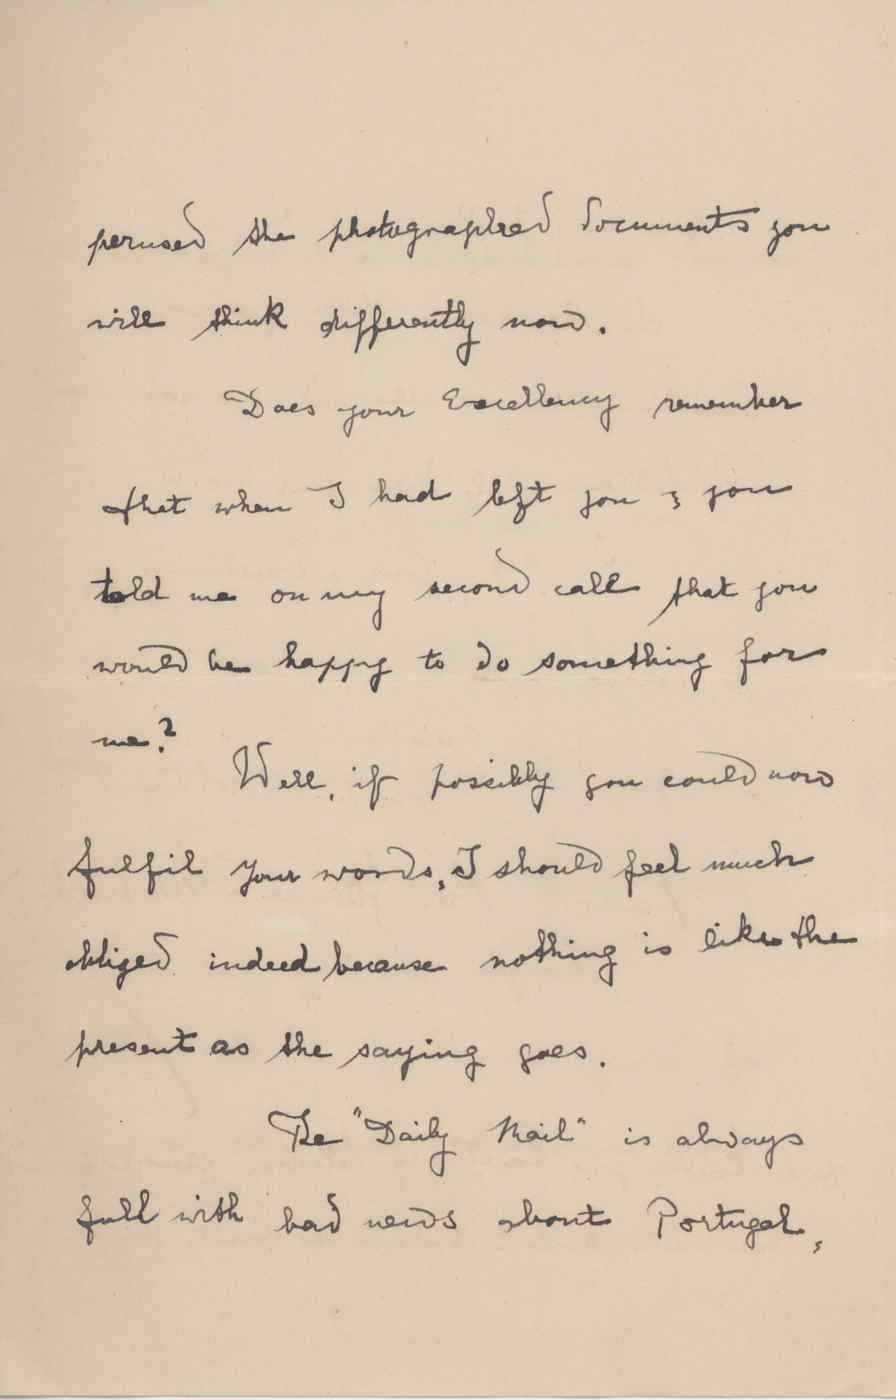 perused the photographed documents you
will think differently now.
Does your Excellency remember
that when I had left you & you
told me on my second call that you
would be happy to do something for
me?
Well, if possibly you could now
fulfil your words, I should feel much
obliged indeed because nothing is like the
present as the saying goes.
The "Daily Mail" is always
full with bad news about Portugal,